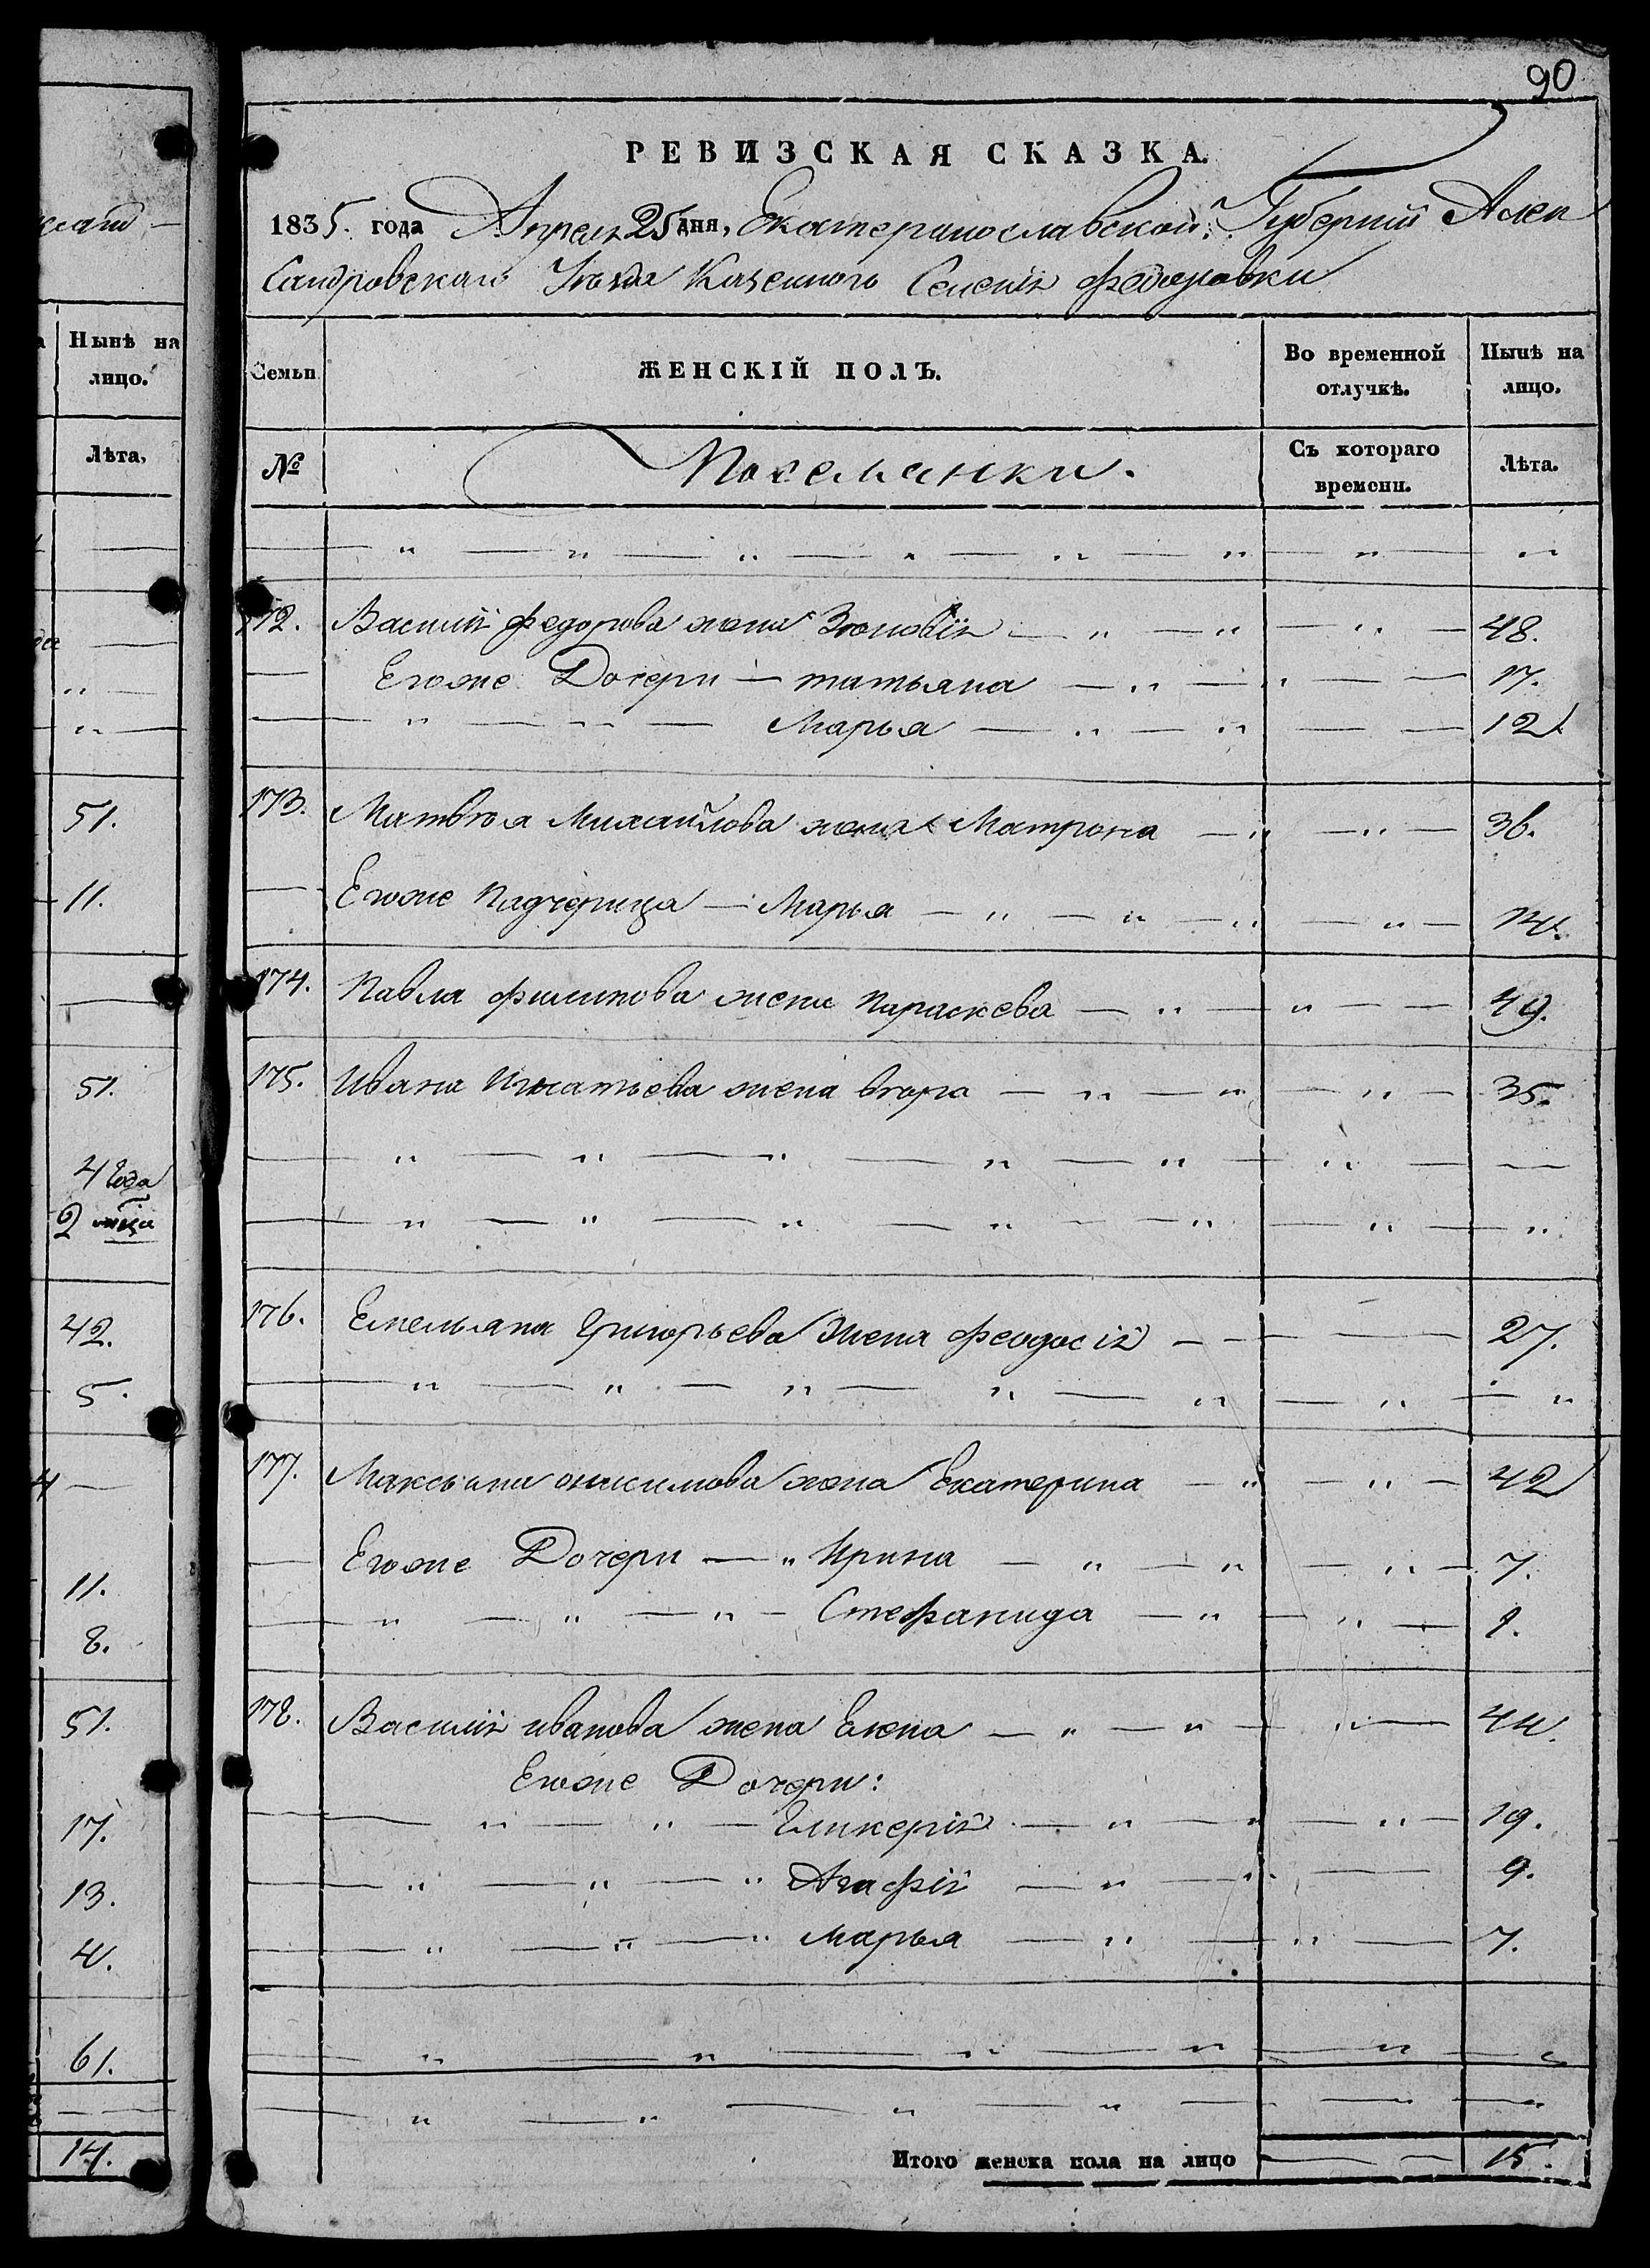 90
РЕВИЗСКАЯ СКАЗКА.
1835. года Апреля 25 дня, Екатеринославской Губернии Алек
сандровскаго Уезда Казеннаго Селенія Федоровки
Нынѣ на
лицо.
Лѣта,
51.
11.
51.
4 года
2 мѣца
42.
5.
11.
8.
51.
17.
13.
4.
61.
14.
Семьи
ЖЕНСКІЙ ПОЛЪ.
Во временной
отлучкѣ.
Нынѣ на
лицо.
№
Поселянки.
Съ котораго
времени.
Лѣта.
172. Василія Федорова жена Зеновія 48.
Егоже Дочери — татьяна 17.
Марья 12
173. Матвѣя Михайлова жена Матрона 36.
Егоже Падчерица — Марья 14.
174. Павла филипова жена Параскева 49.
175. Ивана Игнатьева жена втора 35.
176. Емельяна Григорьева Жена феодосія 27.
177. Максыма онисимова жена Екатерина 42
Егоже Дочери — Ирина 7.
Стефанида 1.
178. Василія иванова жена Елена 44.
Егоже Дочери:
Гликерія 19.
Агафія 9.
Марья 7.
Итого женска пола на лицо 15.